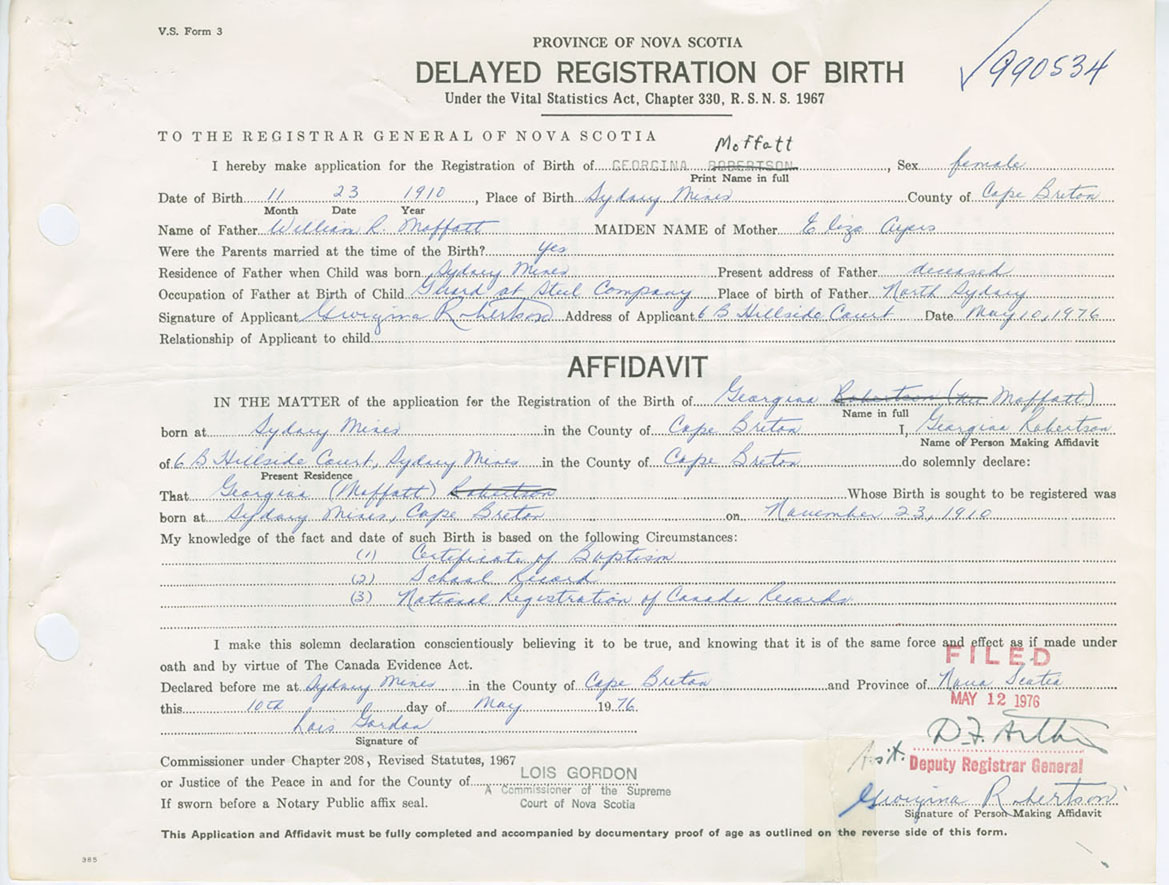 V.S. Form 3
990534
PROVINCE OF NOVA SCOTIA
DELAYED REGISTRATION OF BIRTH
Under the Vital Statistics Act, Chapter 330, R. S. N. S. 1967
TO THE REGISTRAR GENERAL OF NOVA SCOTIA
Moffatt
I hereby make application for the Registration of Birth of GEORGINA ROBERTSON, Sex female
Print Name in full
Date of Birth 11 23 1910, Place of Birth Sydney Mines County of Cape Breton
Month Date Year
Name of Father William R. Moffatt MAIDEN NAME of Mother Eliza Ayers
Were the Parents married at the time of the Birth? yes
Residence of Father when Child was born Sydney Mines Present address of Father deceased
Occupation of Father at Birth of Child Guard at Steel Company Place of birth of Father North Sydney
Signature of Applicant Georgina Robertson Address of Applicant 6 B Hillside Court Date May 10, 1976
Relationship of Applicant to child
AFFIDAVIT
IN THE MATTER of the application for the Registration of the Birth of Georgina Robertson (nee Moffatt)
Name in full
born at Sydney Mines in the County of Cape Breton I, Georgina Robertson
Name of Person Making Affidavit
of 6 B Hillside Court, Sydney Mines in the County of Cape Breton do solemnly declare:
Present Residence
That Georgina (Moffatt) Robertson Whose Birth is sought to be registered was
born at Sydney Mines, Cape Breton on November 23, 1910
My knowledge of the fact and date of such Birth is based on the following Circumstances:
(1) Certificate of Baptism
(2) School Record
(3) National Registration of Canada Records
I make this solemn declaration conscientiously believing it to be true, and knowing that it is of the same force and effect as if made under
oath and by virtue of The Canada Evidence Act.
FILED
Declared before me at Sydney Mines in the County of Cape Breton and Province of Nova Scotia
MAY 12 1976
this 10th day of May 1976.
Lois Gordon
Signature of
D.F. Arthur
Asst. Deputy Registrar General
Commissioner under Chapter 208, Revised Statutes, 1967
or Justice of the Peace in and for the County of
LOIS GORDON
A Commissioner of the Supreme
Court of Nova Scotia
If sworn before a Notary Public affix seal.
Georgina Robertson
Signature of Person Making Affidavit
This Application and Affidavit must be fully completed and accompanied by documentary proof of age as outlined on the reverse side of this form.
365